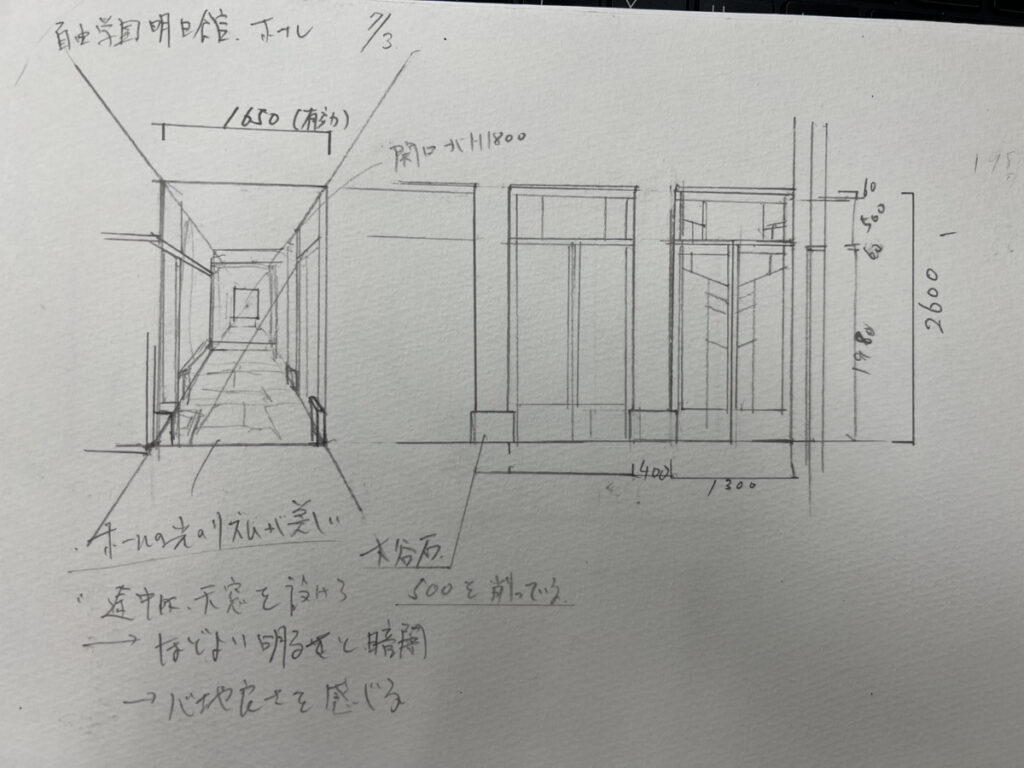 自由学園明日館 ホール 7/3
1650 (有効)
開口がH1800
60
500
60
1980
2600
400
1300
・ホールの光のリズムが美しい
大谷石
500を削っている
・途中は、天窓を設ける
→ ほどよい明るさと暗闇
→ 心地良さを感じる